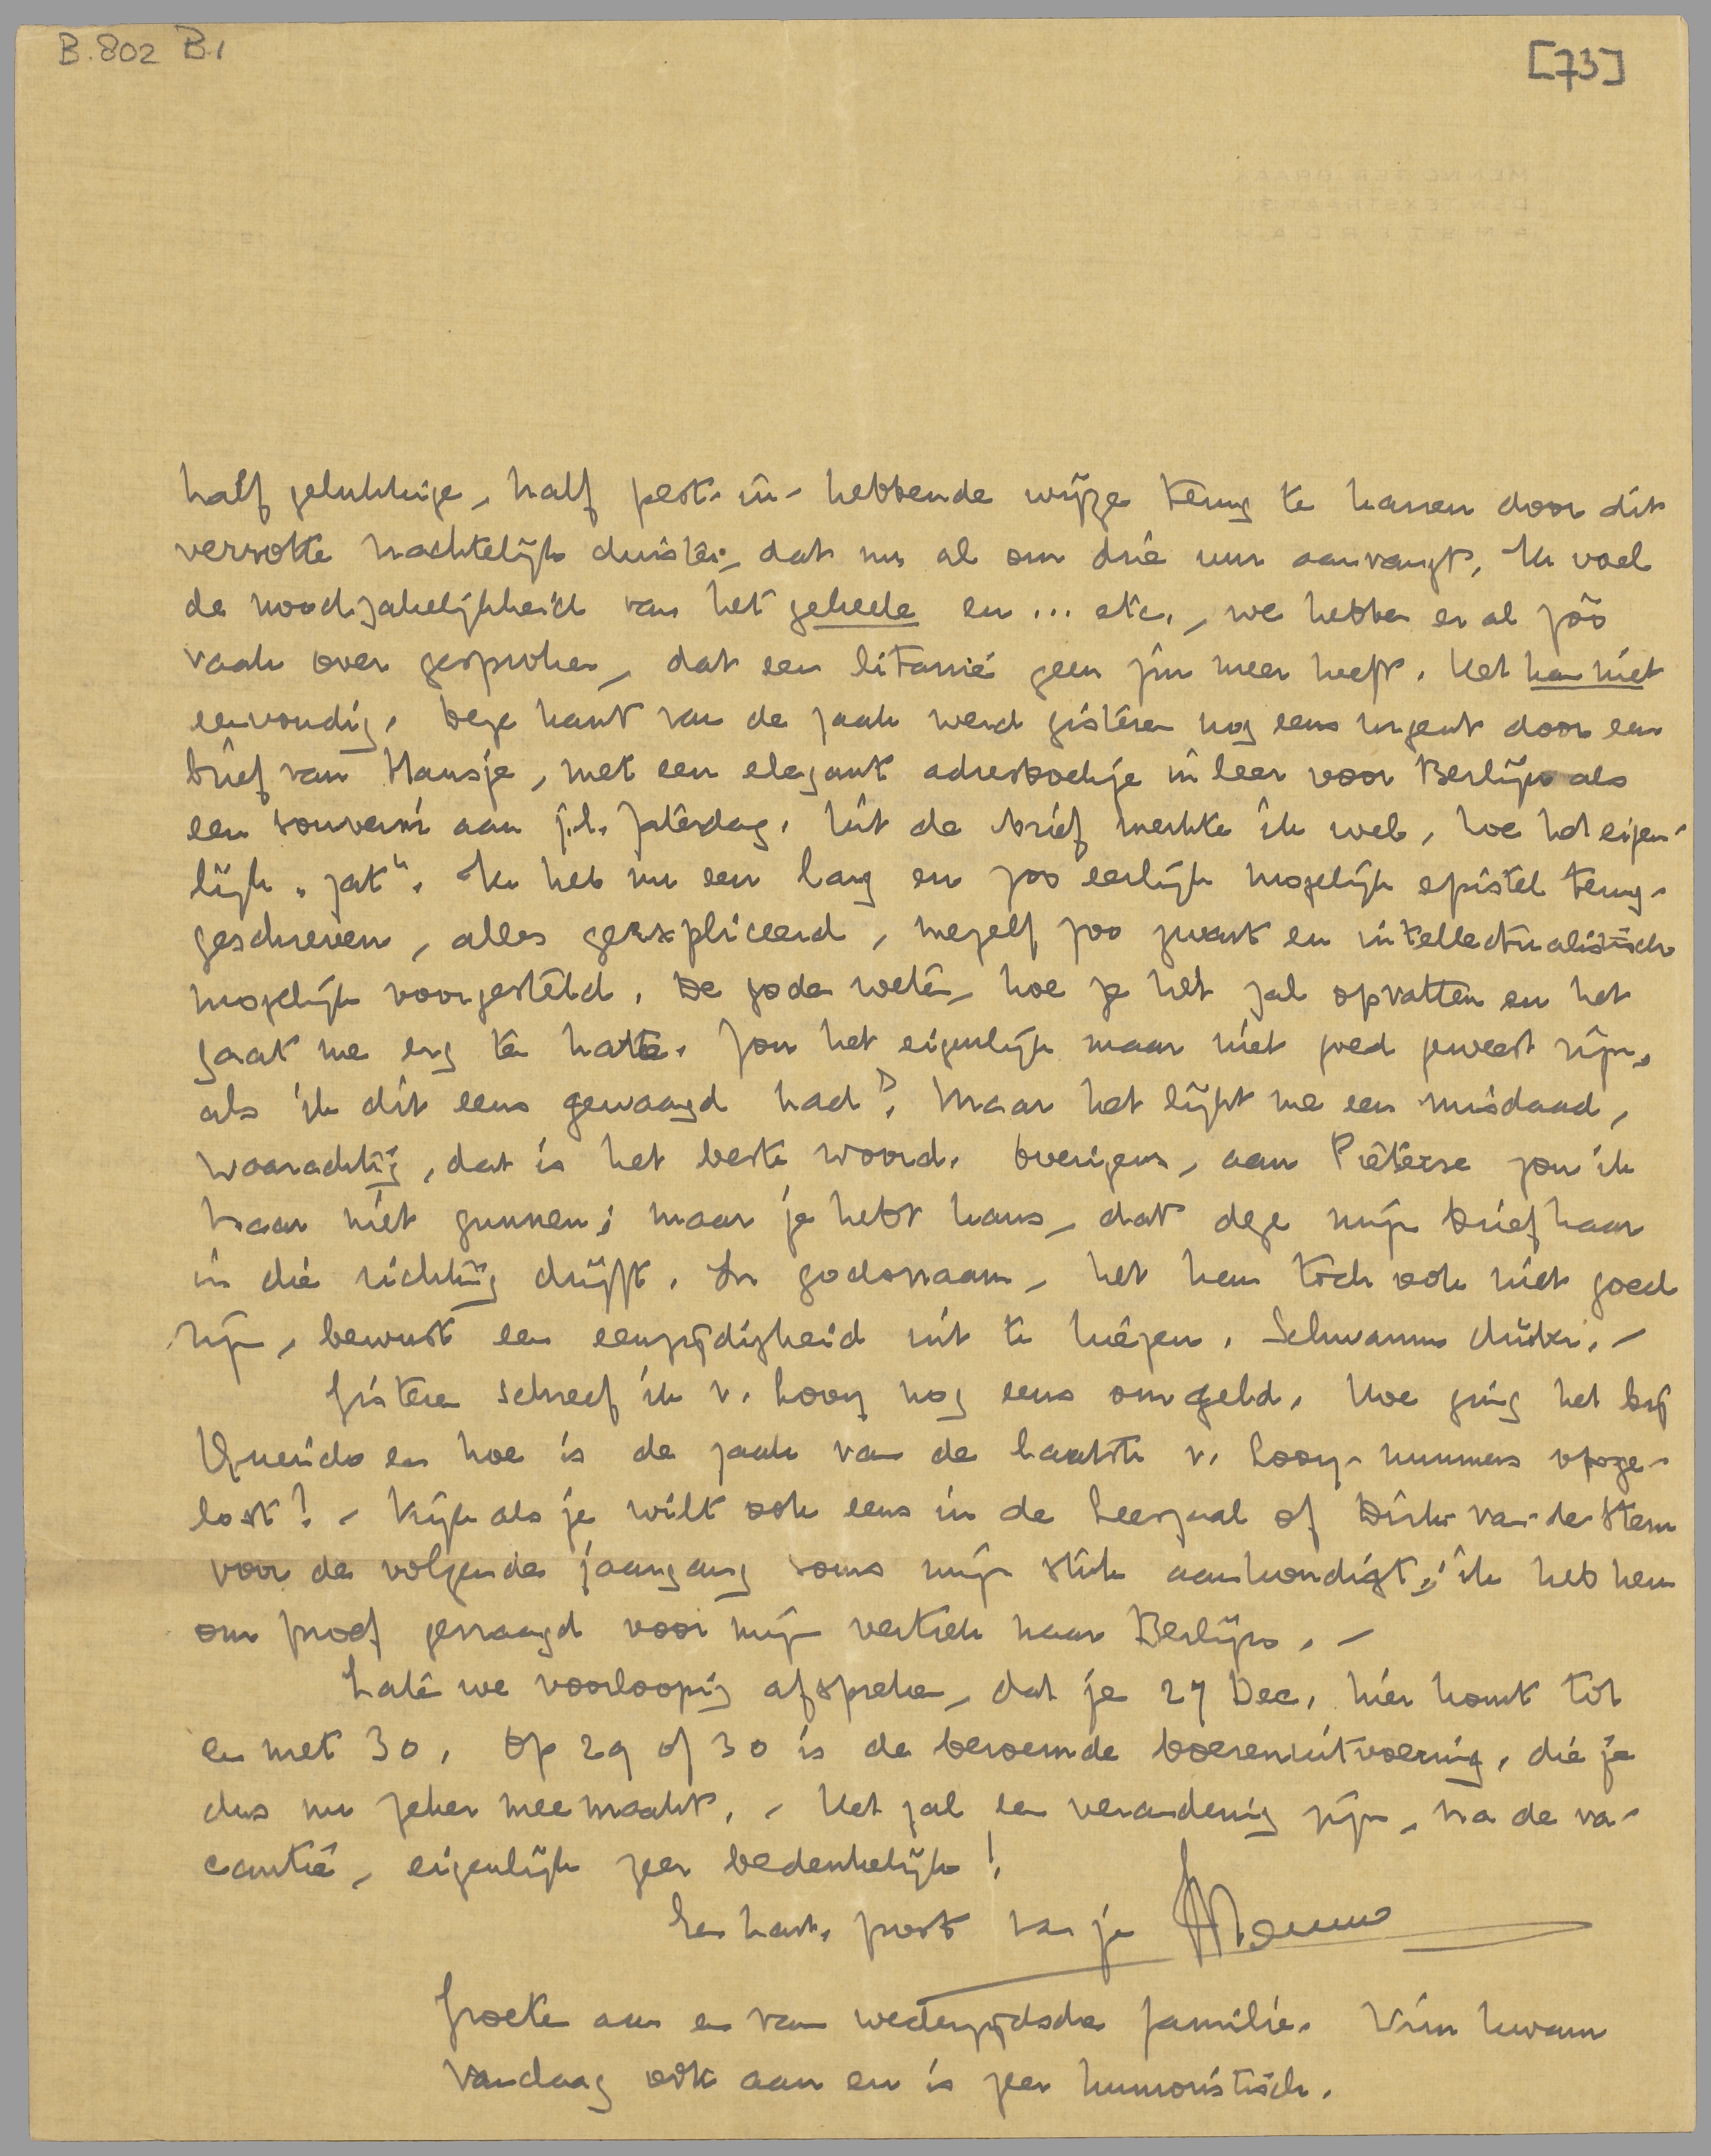 B.802 B.1
[73]
half gelukkige, half pest-in-hebbende wijze terug te karren door dit
verrotte nachtelijk duister, dat nu al om drie uur aanvangt. Ik voel
de noodzakelijkheid van het geheele en ... etc., we hebben er al zóó
vaak over gesproken, dat een litanie geen zin meer heeft. Het kan niet
eenvoudig. Deze kant van de zaak werd gisteren nog eens urgent door een
brief van Hansje, met een elegant adresboekje in leer voor Berlijn als
een souvenir aan j.l. Zaterdag. Uit de brief merkte ik wel, hoe het eigen-
lijk „zat". Ik heb nu een lang en zoo eerlijk mogelijk epistel terug-
geschreven, alles geëxpliceerd, mezelf zoo zwart en intellectualistisch
mogelijk voorgesteld. De goden weten, hoe ze het zal opvatten en het
gaat me erg ter harte. Zou het eigenlijk maar niet goed geweest zijn,
als ik dit eens gewaagd had? Maar het lijkt me een misdaad,
waarachtig, dat is het beste woord. Overigens, aan Pieterse zou ik
haar niet gunnen; maar je hebt kans, dat deze mijn brief haar
in die richting drijft. In godsnaam, het kan toch ook niet goed
zijn, bewust een eenzijdigheid uit te kiezen. Schwamm drüber. –
Gisteren schreef ik v. Looy nog eens om geld. Hoe ging het bij
Querido en hoe is de zaak van de laatste v. Looy-nummers opge-
lost? – Kijk als je wilt ook eens in de Leeszaal of Dirk van de Stem
voor de volgende jaargang soms mijn stuk aankondigt; ik heb hem
om proef gevraagd voor mijn vertrek naar Berlijn. –
Laten we voorloopig afspreken, dat je 27 Dec. hier komt tot
en met 30. Op 29 of 30 is de beroemde boerenuitvoering, die je
dus nu zeker meemaakt. – Het zal een verandering zijn, na de va-
cantie, eigenlijk zeer bedenkelijk!
Een hart. poot van je Menno
Groeten aan en van wederzijdsche familie. Wim kwam
vandaag ook aan en is zeer humoristisch.